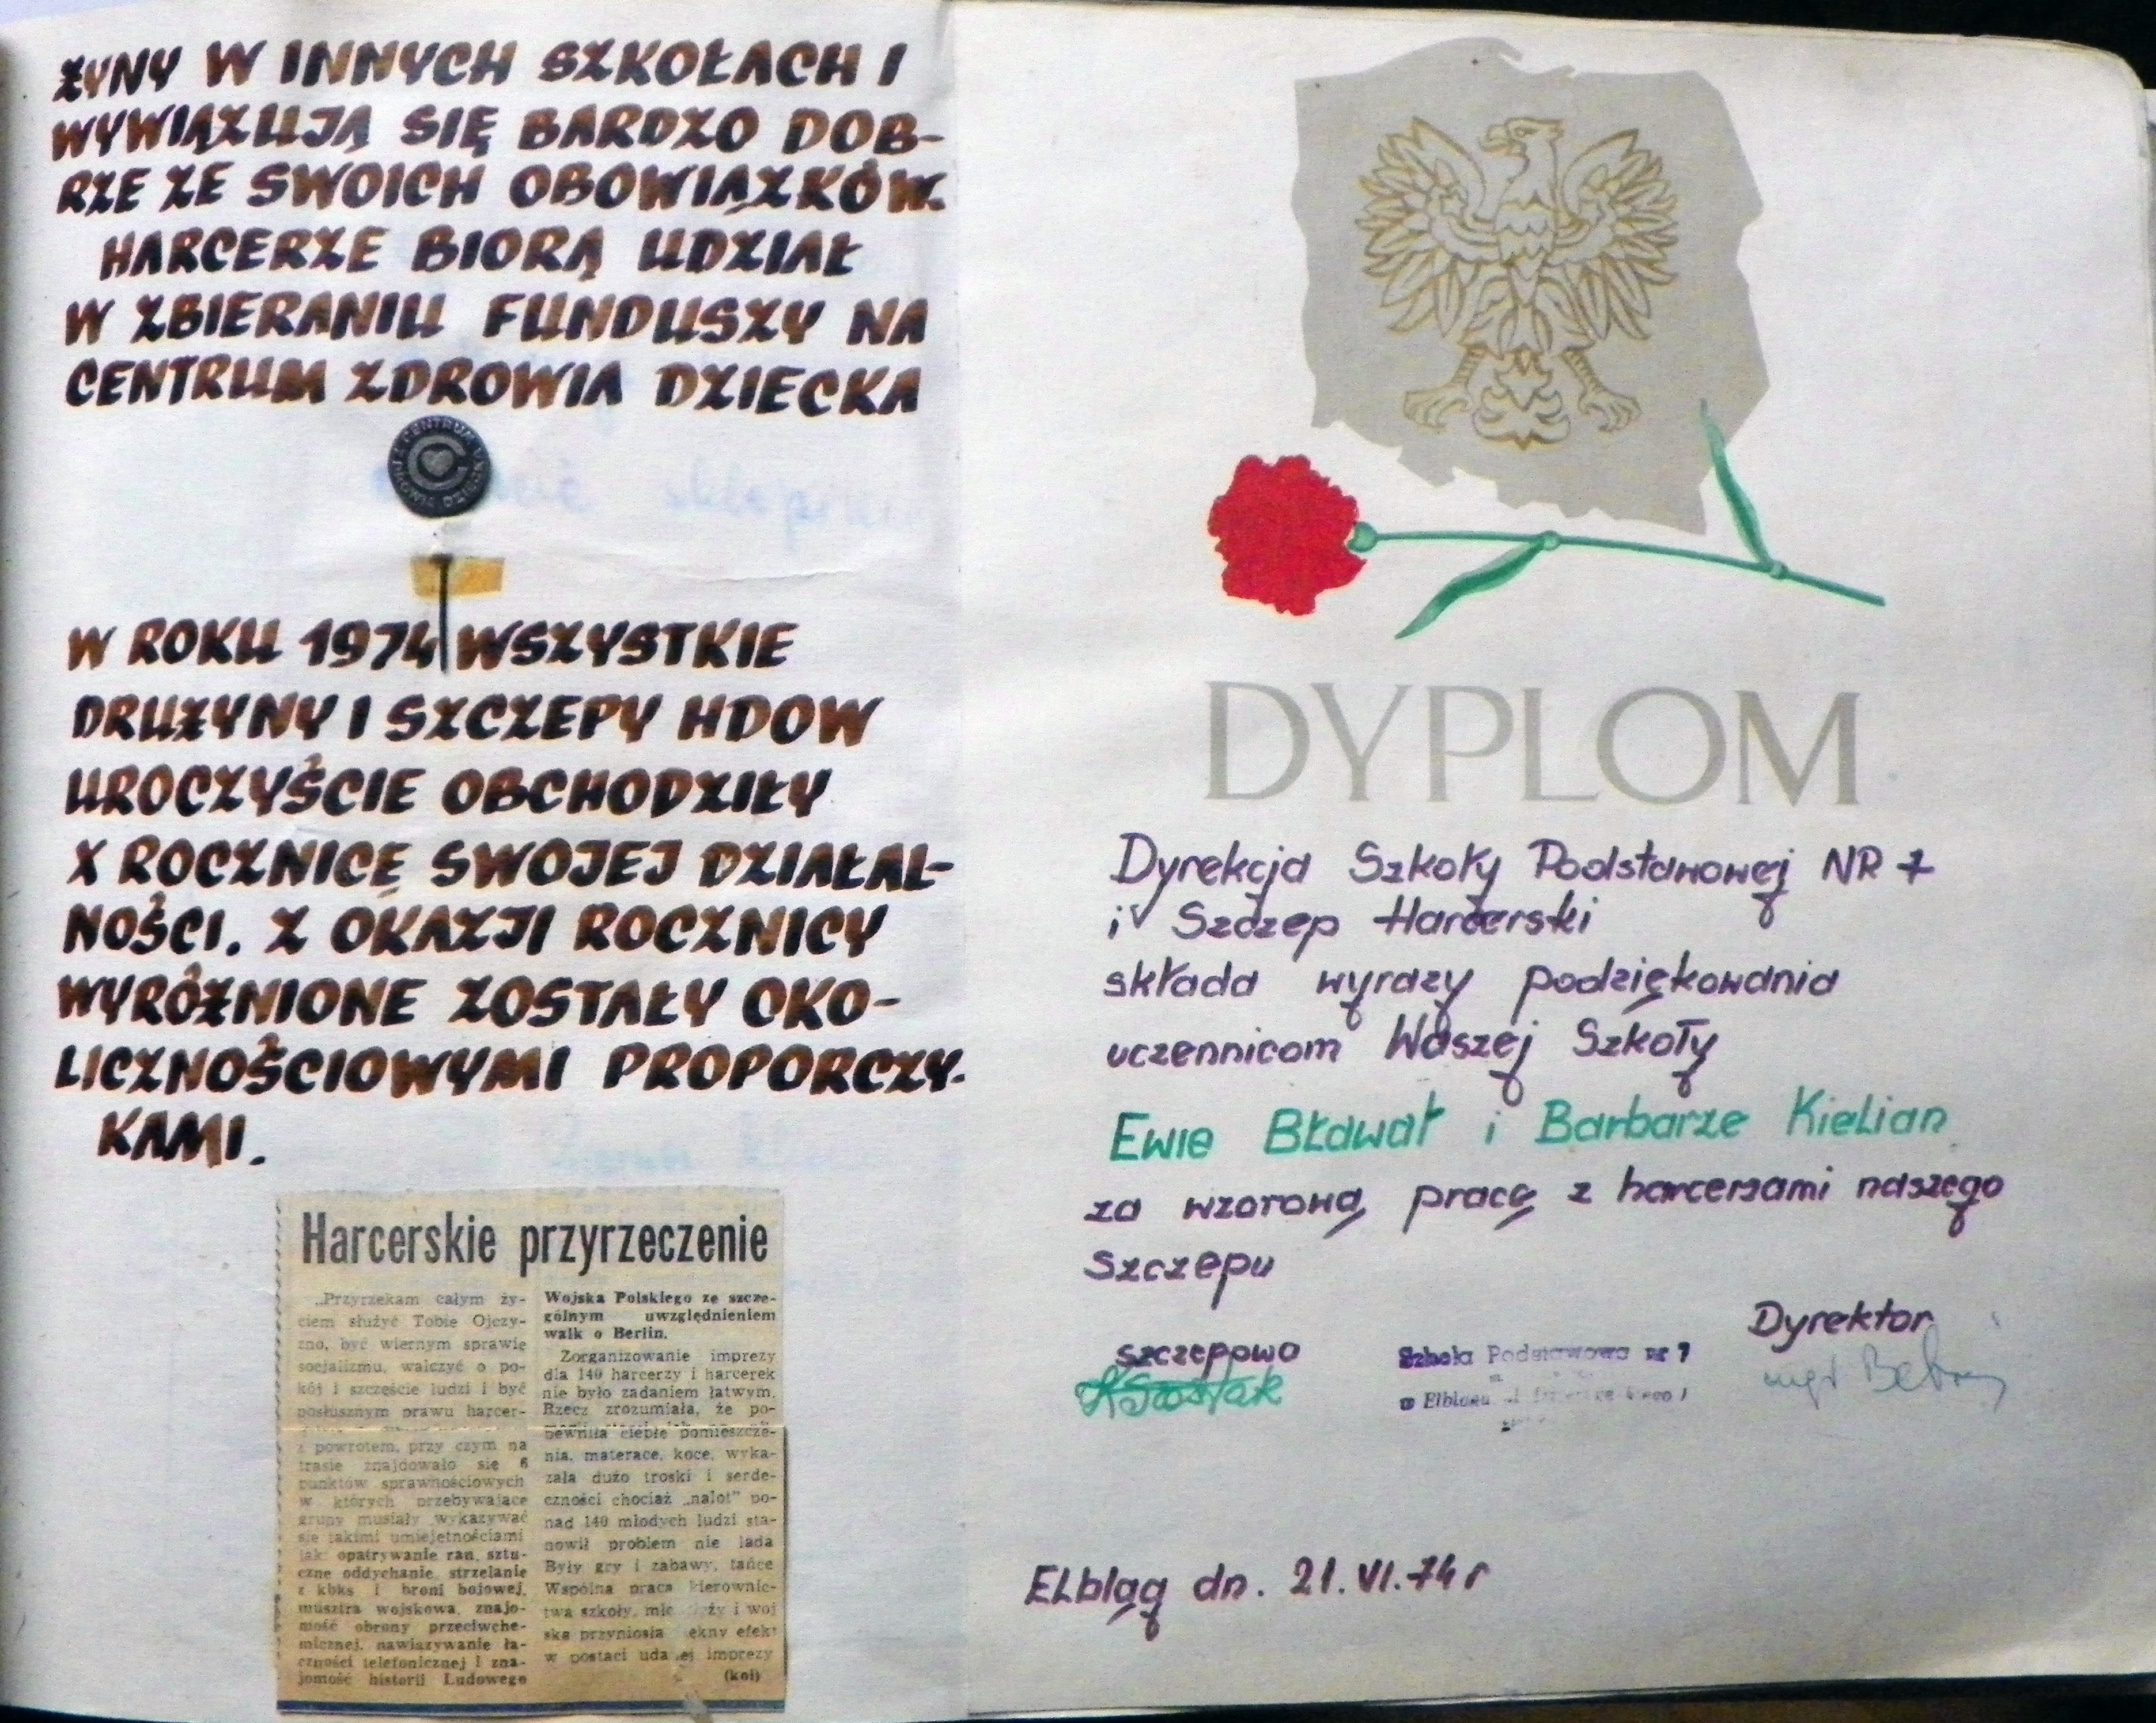 ŻYNY W INNYCH SZKOŁACH I
WYWIĄZUJĄ SIĘ BARDZO DOB-
RZE ZE SWOICH OBOWIĄZKÓW.
HARCERZE BIORĄ UDZIAŁ
W ZBIERANIU FUNDUSZY NA
CENTRUM ZDROWIA DZIECKA
CENTRUM ZDROWIA DZIECKA
W ROKU 1974 WSZYSTKIE
DRUŻYNY I SZCZEPY HDOW
UROCZYŚCIE OBCHODZIŁY
X ROCZNICĘ SWOJEJ DZIAŁAL-
NOŚCI. Z OKAZJI ROCZNICY
WYRÓŻNIONE ZOSTAŁY OKO-
LICZNOŚCIOWYMI PROPORCZY-
KAMI.
Harcerskie przyrzeczenie
„Przyrzekam całym ży-
ciem służyć Tobie Ojczy-
zno, być wiernym sprawie
socjalizmu, walczyć o po-
kój i szczęście ludzi i być
posłusznym prawu harcer-
z powrotem, przy czym na
trasie znajdowało się 6
punktów sprawnościowych
w których przebywające
grupy musiały wykazywać
się takimi umiejętnościami
jak: opatrywanie ran, sztu-
czne oddychanie, strzelanie
z kbks i broni bojowej,
musztra wojskowa, znajo-
mość obrony przeciwche-
micznej, nawiązywanie łą-
czności telefonicznej i zna-
jomość historii Ludowego
Wojska Polskiego ze szcze-
gólnym uwzględnieniem
walk o Berlin.
Zorganizowanie imprezy
dla 140 harcerzy i harcerek
nie było zadaniem łatwym.
Rzecz zrozumiała, że po-
pewniła ciepłe pomieszcze-
nia, materace, koce, wyka-
zała dużo troski i serde-
czności chociaż „nalot" po-
nad 140 młodych ludzi sta-
nowił problem nie lada
Były gry i zabawy, tańce
Wspólna praca kierownic-
twa szkoły, i woj
ska przyniosła efekt
w postaci imprezy
(kol)
DYPLOM
Dyrekcja Szkoły Podstawowej NR 7
i Szczep Harcerski
składa wyrazy podziękowania
uczennicom Waszej Szkoły
Ewie Bławat i Barbarze Kielian
za wzorową pracę z harcerzami naszego
Szczepu
szczepowa
Dyrektor
Szkoła Podstawowa nr 7
w Elblągu
mgr
Elbląg dn. 21.VI.74 r